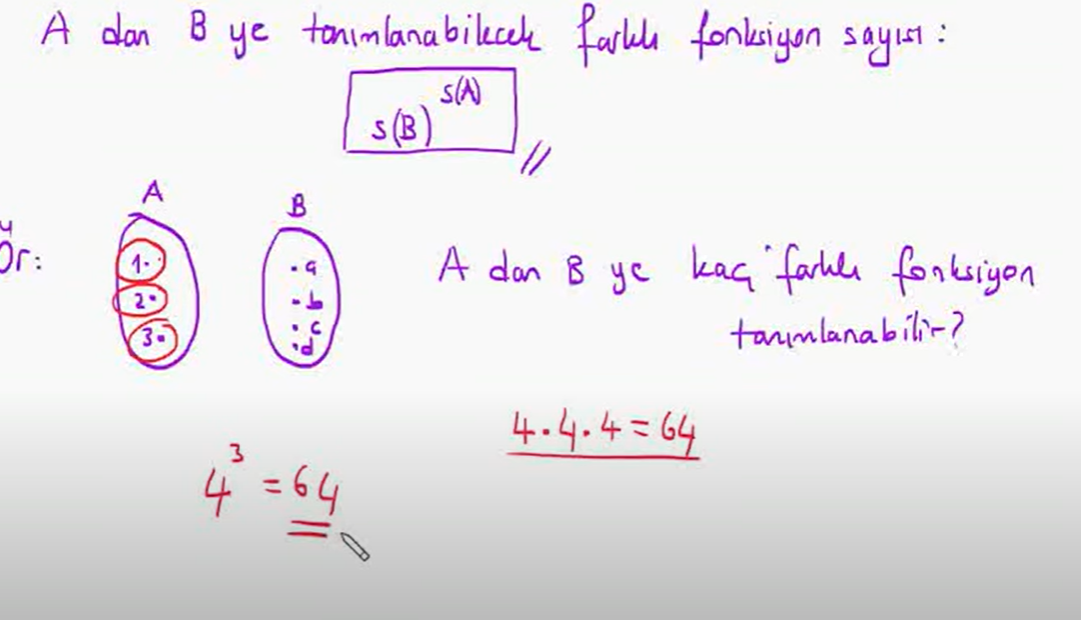 A dan B ye tanımlanabilecek farklı fonksiyon sayısı:
s(B)^s(A) //
A B
Ör:
1. .a
2. .b
3. .c
.d
A dan B ye kaç farklı fonksiyon
tanımlanabilir?
4.4.4=64
4^3 = 64